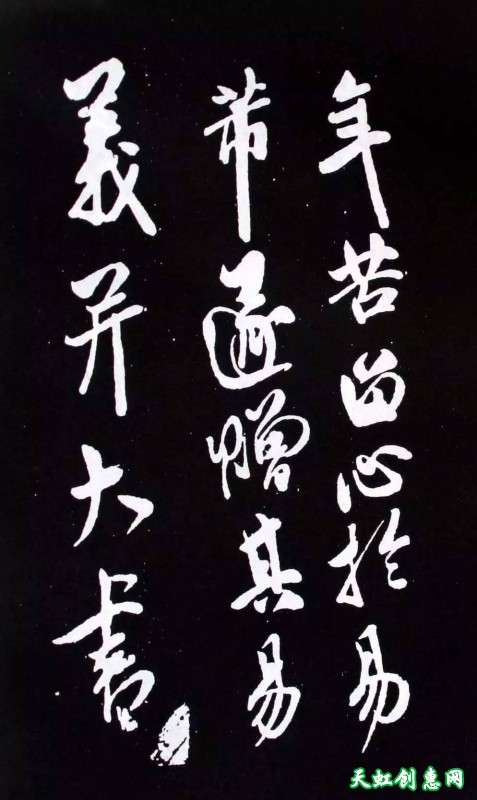 年苦留心於易
芾遂贈其易
義并大書
天虹创惠网